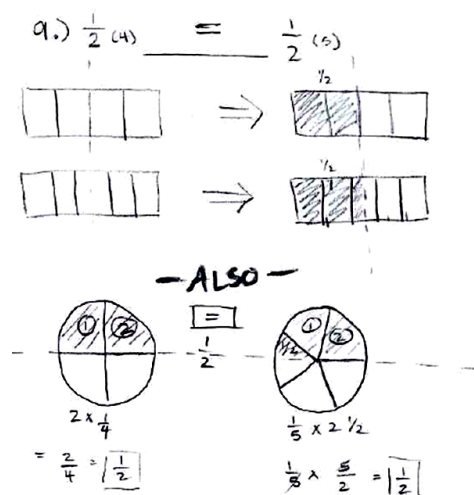 a.) 1/2 (4) = 1/2 (5)
⇒ 1/2
⇒ 1/2
- ALSO -
① ② = ① ② 1/2
1/2
2 x 1/4 1/5 x 2 1/2
= 2/4 = 1/2 1/5 x 5/2 = 1/2